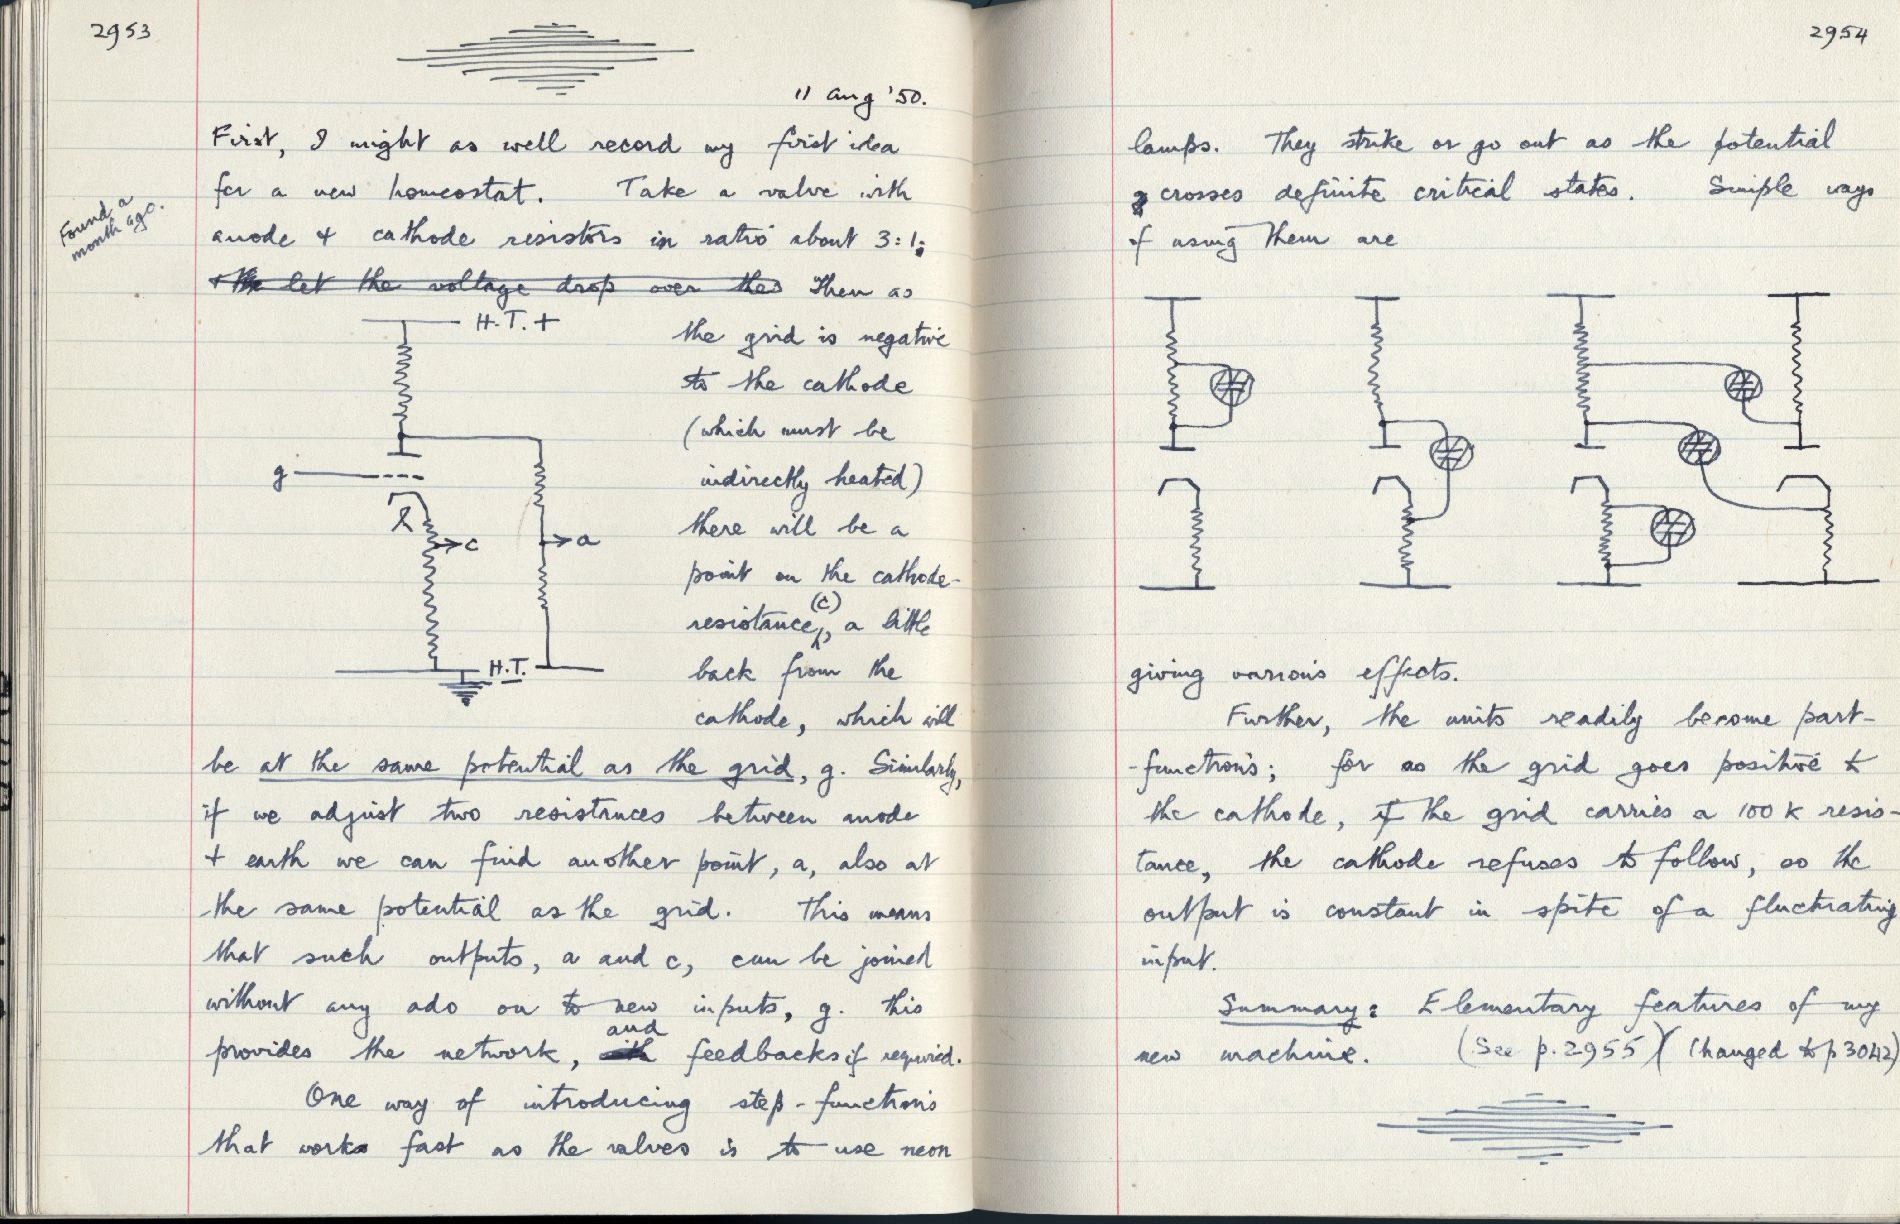 2953
11 Aug '50.
First, I might as well record my first idea
for a new homeostat. Take a valve with
Found a
month ago.
anode & cathode resistors in ratio about 3:1;
let the voltage drop over the Then as
H.T.+
the grid is negative
to the cathode
(which must be
g
indirectly heated)
there will be a
c
a
point on the cathode-
(c)
resistance, a little
back from the
H.T.
cathode, which will
be at the same potential as the grid, g. Similarly,
if we adjust two resistances between anode
+ earth we can find another point, a, also at
the same potential as the grid. This means
that such outputs, a and c, can be joined
without any ado on to new inputs, g. This
and
provides the network, feedbacks if required.
One way of introducing step-functions
that works fast as the valves is to use neon
2954
lamps. They strike or go out as the potential
crosses definite critical states. Simple ways
of using them are
giving various effects.
Further, the units readily become part-
-functions; for as the grid goes positive to
the cathode, if the grid carries a 100 k resis-
tance, the cathode refuses to follow, so the
output is constant in spite of a fluctuating
input.
Summary: Elementary features of my
new machine. (See p. 2955) (Changed to p 3042)